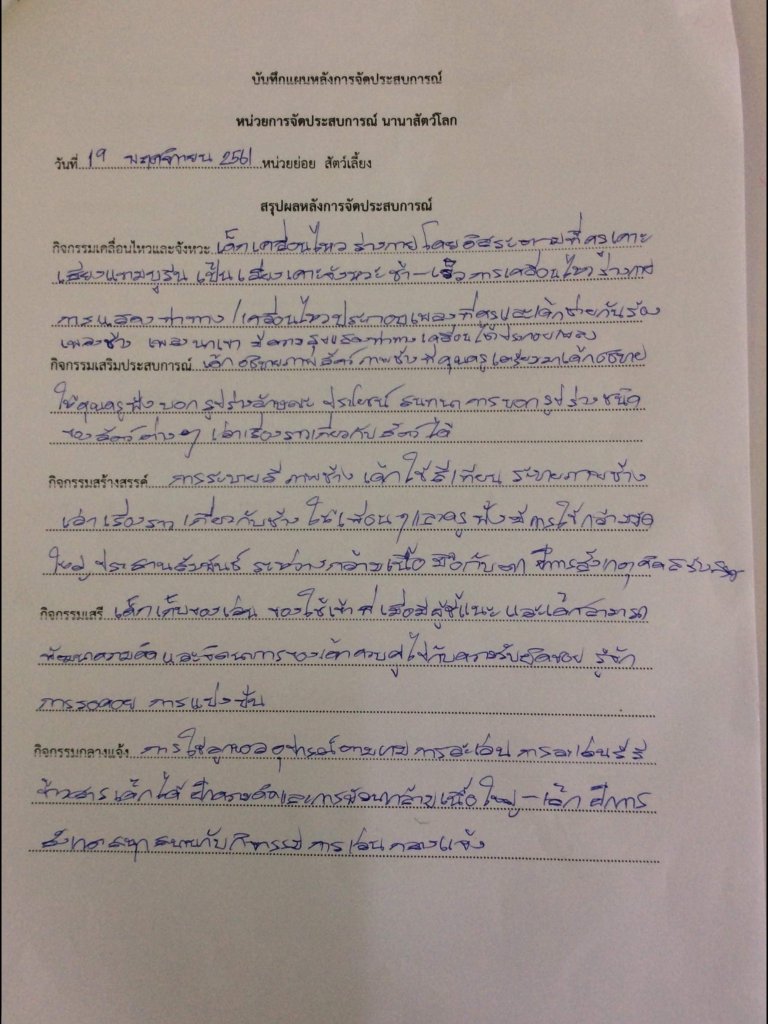 บันทึกแผนหลังการจัดประสบการณ์
หน่วยการจัดประสบการณ์ นานาสัตว์โลก
วันที่ 19 พฤศจิกายน 2561 หน่วยย่อย สัตว์เลี้ยง
สรุปผลหลังการจัดประสบการณ์
กิจกรรมเคลื่อนไหวและจังหวะ เด็กเคลื่อนไหวร่างกายโดยอิสระตามที่ครูเคาะ
เสียงแทมบูริน เป็นเสียงเคาะจังหวะช้า-เร็ว การเคลื่อนไหวร่างกาย
การแสดงท่าทาง/เคลื่อนไหวประกอบเพลงที่ครูและเด็กช่วยกันร้อง
เพลงช้าง เพลง มีความสุขแสดงท่าทางเคลื่อนไหวประกอบเพลง
กิจกรรมเสริมประสบการณ์ เด็กอธิบายภาพสัตว์ ภาพช้างที่คุณครูเตรียมมาเด็กอธิบาย
ให้คุณครูฟัง บอกรูปร่างลักษณะ ประโยชน์ สนทนา การบอกรูปร่างชนิด
ของสัตว์ต่างๆ เล่าเรื่องราวเกี่ยวกับสัตว์ได้
กิจกรรมสร้างสรรค์ การระบายสีภาพช้าง เด็กใช้สีเทียนระบายภาพช้าง
เล่าเรื่องราวเกี่ยวกับช้าง ให้เพื่อนๆและครูฟัง มีการใช้กล้ามมัด
ใหญ่ ประสานสัมพันธ์ ระหว่างกล้ามเนื้อมือกับตา มีการสังเกตุคิดสร้างสรรค์
กิจกรรมเสรี เด็กเก็บของเล่น ของใช้เข้าที่เมื่อมีผู้ชี้แนะ และเด็กสามารถ
พัฒนาความคิดและจินตนาการของเด็กควบคู่ไปกับความรับผิดชอบ รู้จัก
การรอคอย การแบ่งปัน
กิจกรรมกลางแจ้ง การใช้ลูกบอล อุปกรณ์ การละเล่น การละเล่นรีรี
ข้าวสาร เด็กได้ฝึกความคิดและการ กล้ามเนื้อใหญ่-เล็ก มีการ
สังเกต สนุกสนานกับกิจกรรม การเล่นกลางแจ้ง